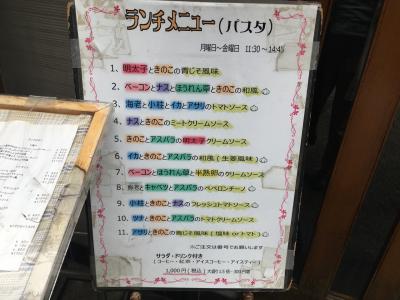 ランチメニュー(パスタ)
月曜日～金曜日 11:30～14:45
1、明太子ときのこの青じそ風味
2、ベーコンとナスとほうれん草ときのこの和風
3、海老と小柱とイカとアサリのトマトソース
4、ナスときのこのミートクリームソース
5、きのことアスパラの明太子クリームソース
6、イカときのことアスパラの和風(生姜風味)
7、ベーコンとほうれん草と半熟卵のクリームソース
8、とキャベツとアスパラのペペロンチーノ
9、小柱ときのことナスのフレッシュトマトソース
10、ツナときのことアスパラのトマトクリームソース
11、アサリときのこの青じそ風味(塩味orトマト)
※ご注文は番号でお願いします
サラダ・ドリンク付き
(コーヒー・紅茶・アイスコーヒー・アイスティー)
1,000円(税込)大盛り1.5倍・300円増